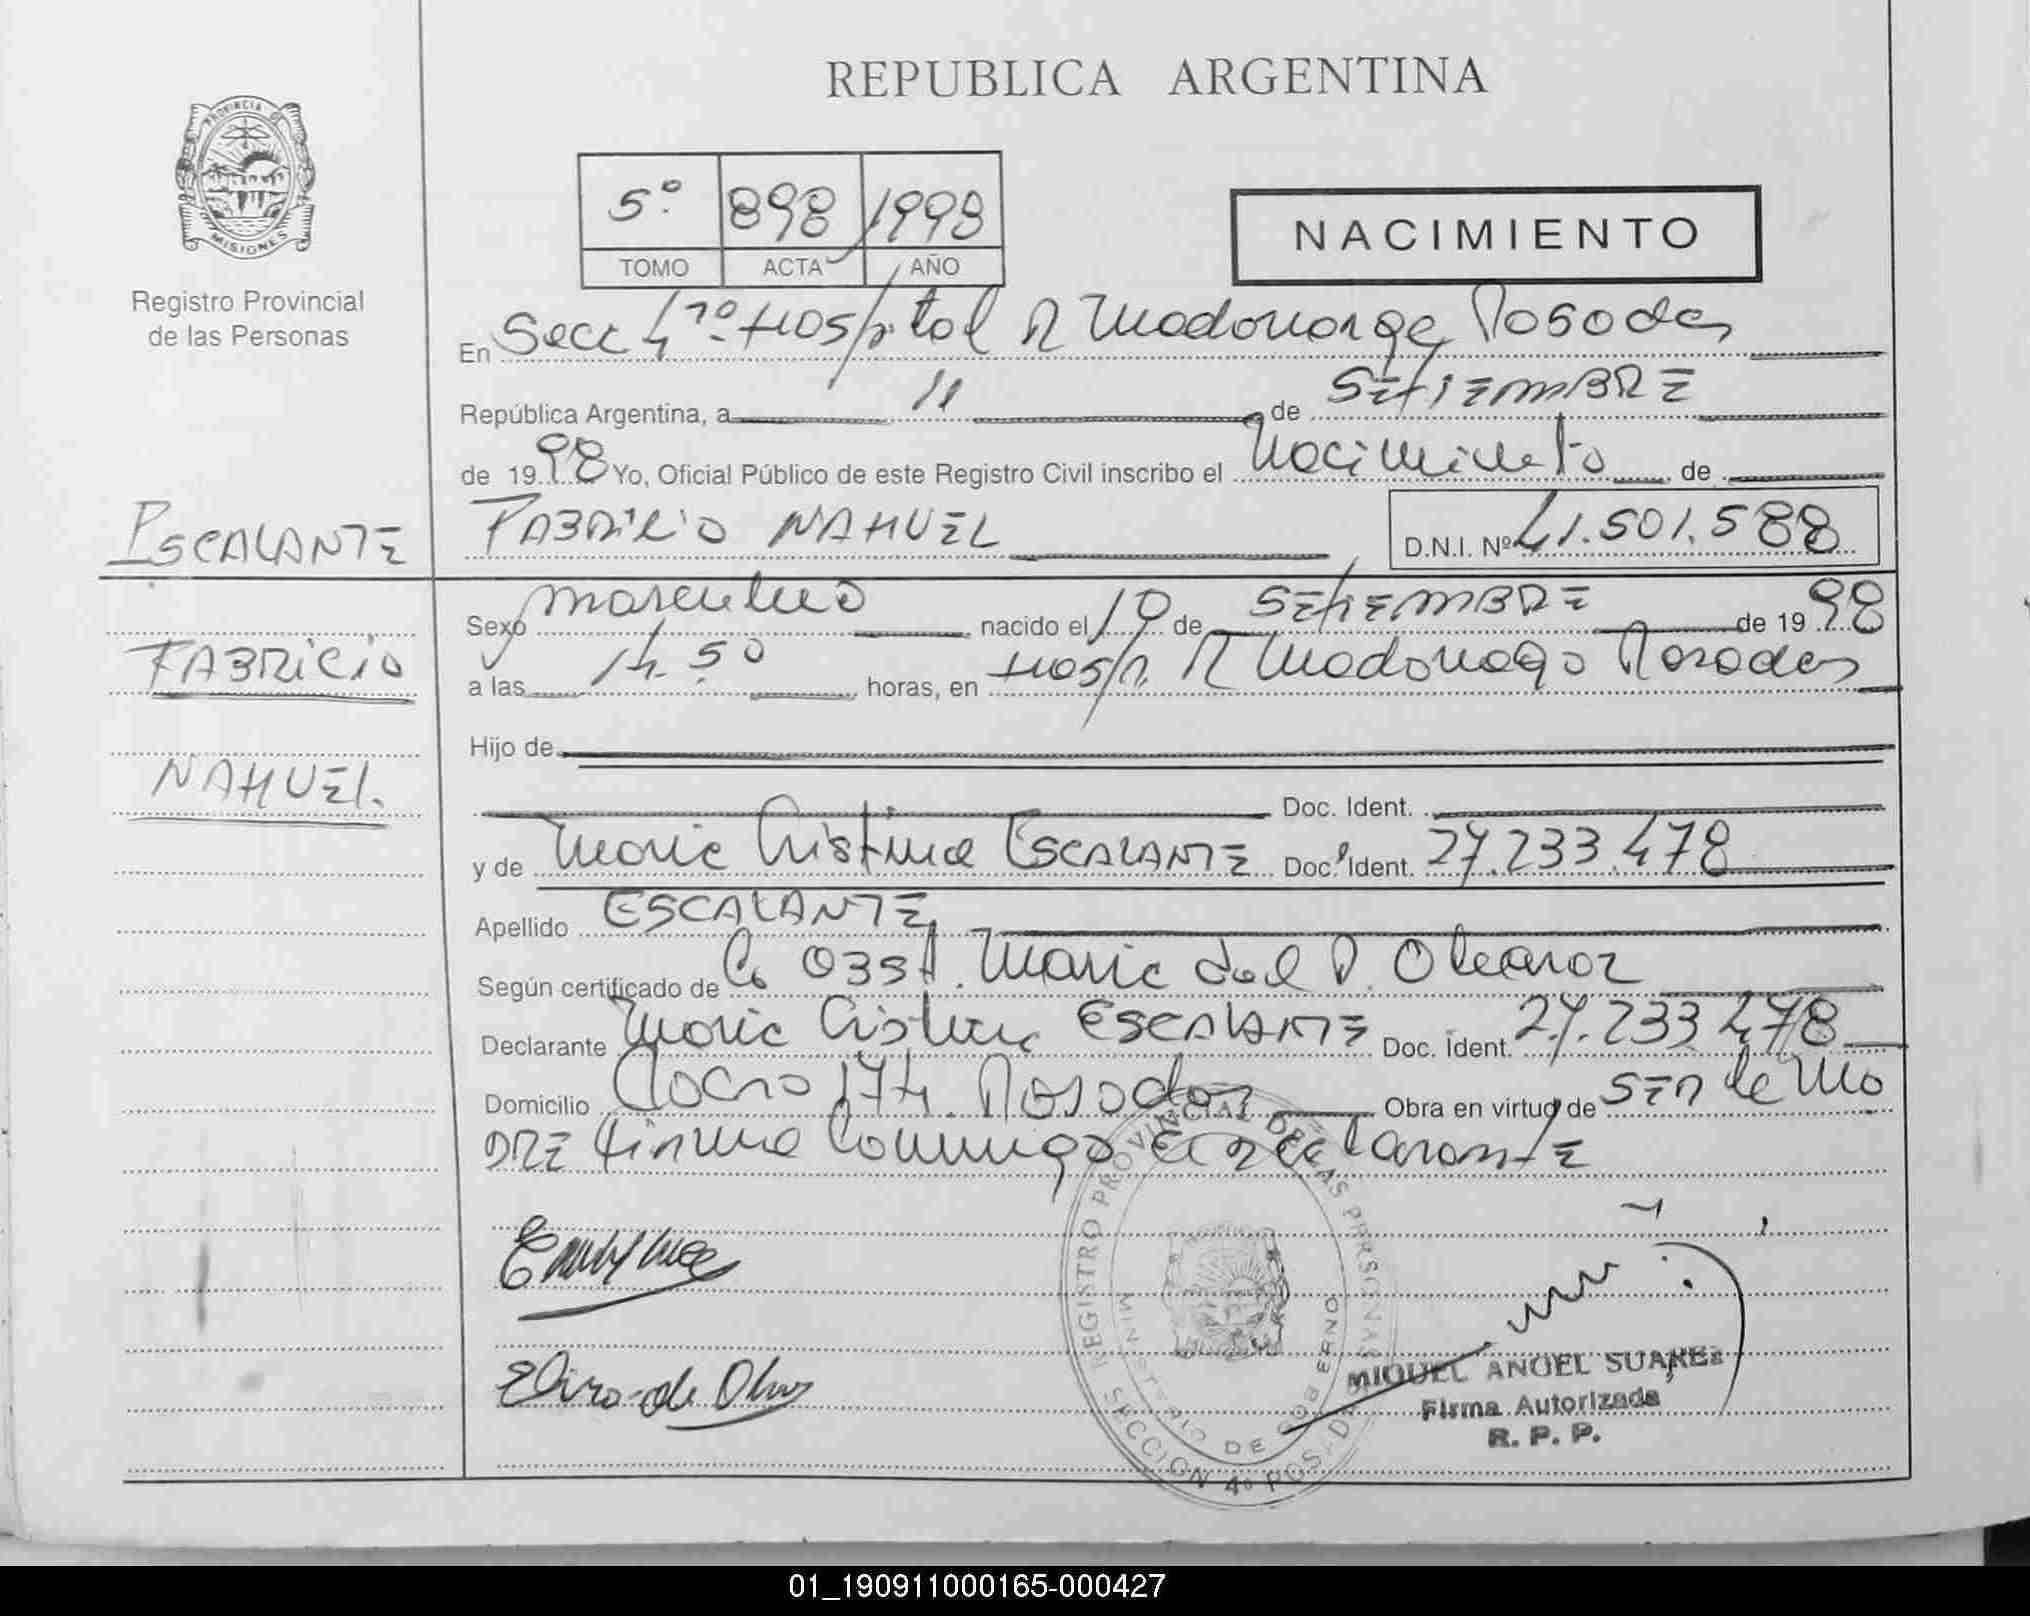 REPUBLICA ARGENTINA
PROVINCIA DE
MISIONES
Registro Provincial
de las Personas
5º 898 1998
TOMO ACTA AÑO
NACIMIENTO
En Secc 4º Hospital R Madariaga Posadas
República Argentina, a 11 de SETIEMBRE
de 1998 Yo, Oficial Público de este Registro Civil inscribo el Nacimiento de
ESCALANTE
FABRICIO NAHUEL D.N.I. Nº 41.501.588
Sexo masculino nacido el 10 de SETIEMBRE de 1998
FABRICIO
a las 14.50 horas, en Hosp. R Madariaga Posadas
Hijo de
NAHUEL.
Doc. Ident.
y de Maria Cristina ESCALANTE Doc. Ident. 27.233.478
Apellido ESCALANTE
Según certificado de Obst. Maria del
Declarante Maria Cristina ESCALANTE Doc. Ident. 27.233.478
Domicilio 174 Posadas Obra en virtud de SER la Ma
DRE firma conmigo la declarante
REGISTRO PROVINCIAL DE LAS PERSONAS
MINISTERIO DE GOBIERNO
SECCION 4º POSADAS
MIGUEL ANGEL SUAREZ
Firma Autorizada
R. P. P.
01_190911000165-000427